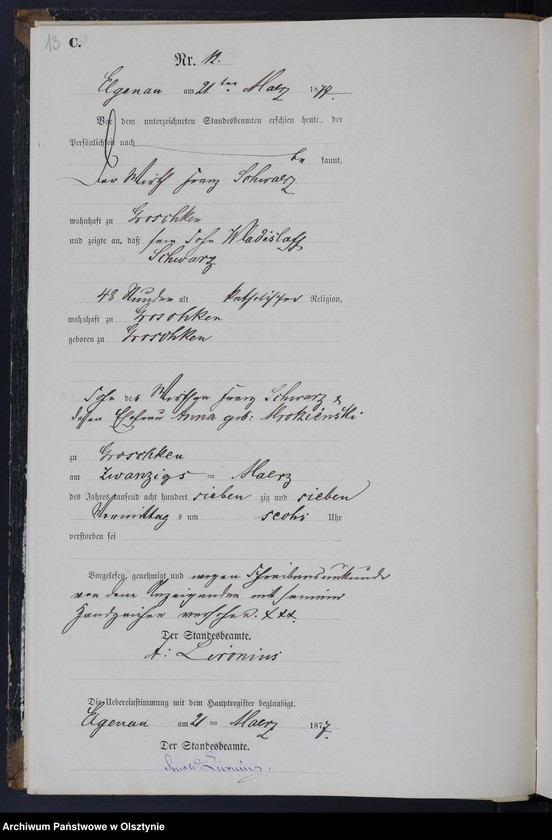 13 C.
Nr. 12.
Elgenau am 21 ten Maerz 1877.
Vor dem unterzeichneten Standesbeamten erschien heute, der
Persönlichkeit nach
be kannt,
Der Wirth Franz Schwarz
wohnhaft zu Groschken
und zeigte an, daß sein Sohn Wladislaff
Schwarz
48 Stunden alt katholischer Religion,
wohnhaft zu Groschken
geboren zu Groschken
Sohn des Wirthen Franz Schwarz &
dessen Ehefrau Anna geb: Mrokienski
zu Groschken
am zwanzigs ten Maerz
des Jahres tausend acht hundert sieben zig und sieben
Vormittag s um sechs Uhr
verstorben sei
Vorgelesen, genehmigt und wegen Schreibensunkunde
von dem Anzeigenden mit seinem
Handzeichen versehen. +++.
Der Standesbeamte.
A: Lironius
Die Uebereinstimmung mit dem Hauptregister beglaubigt.
Elgenau am 21 ten Maerz 1877.
Der Standesbeamte.
Lironius.
Archiwum Państwowe w Olsztynie